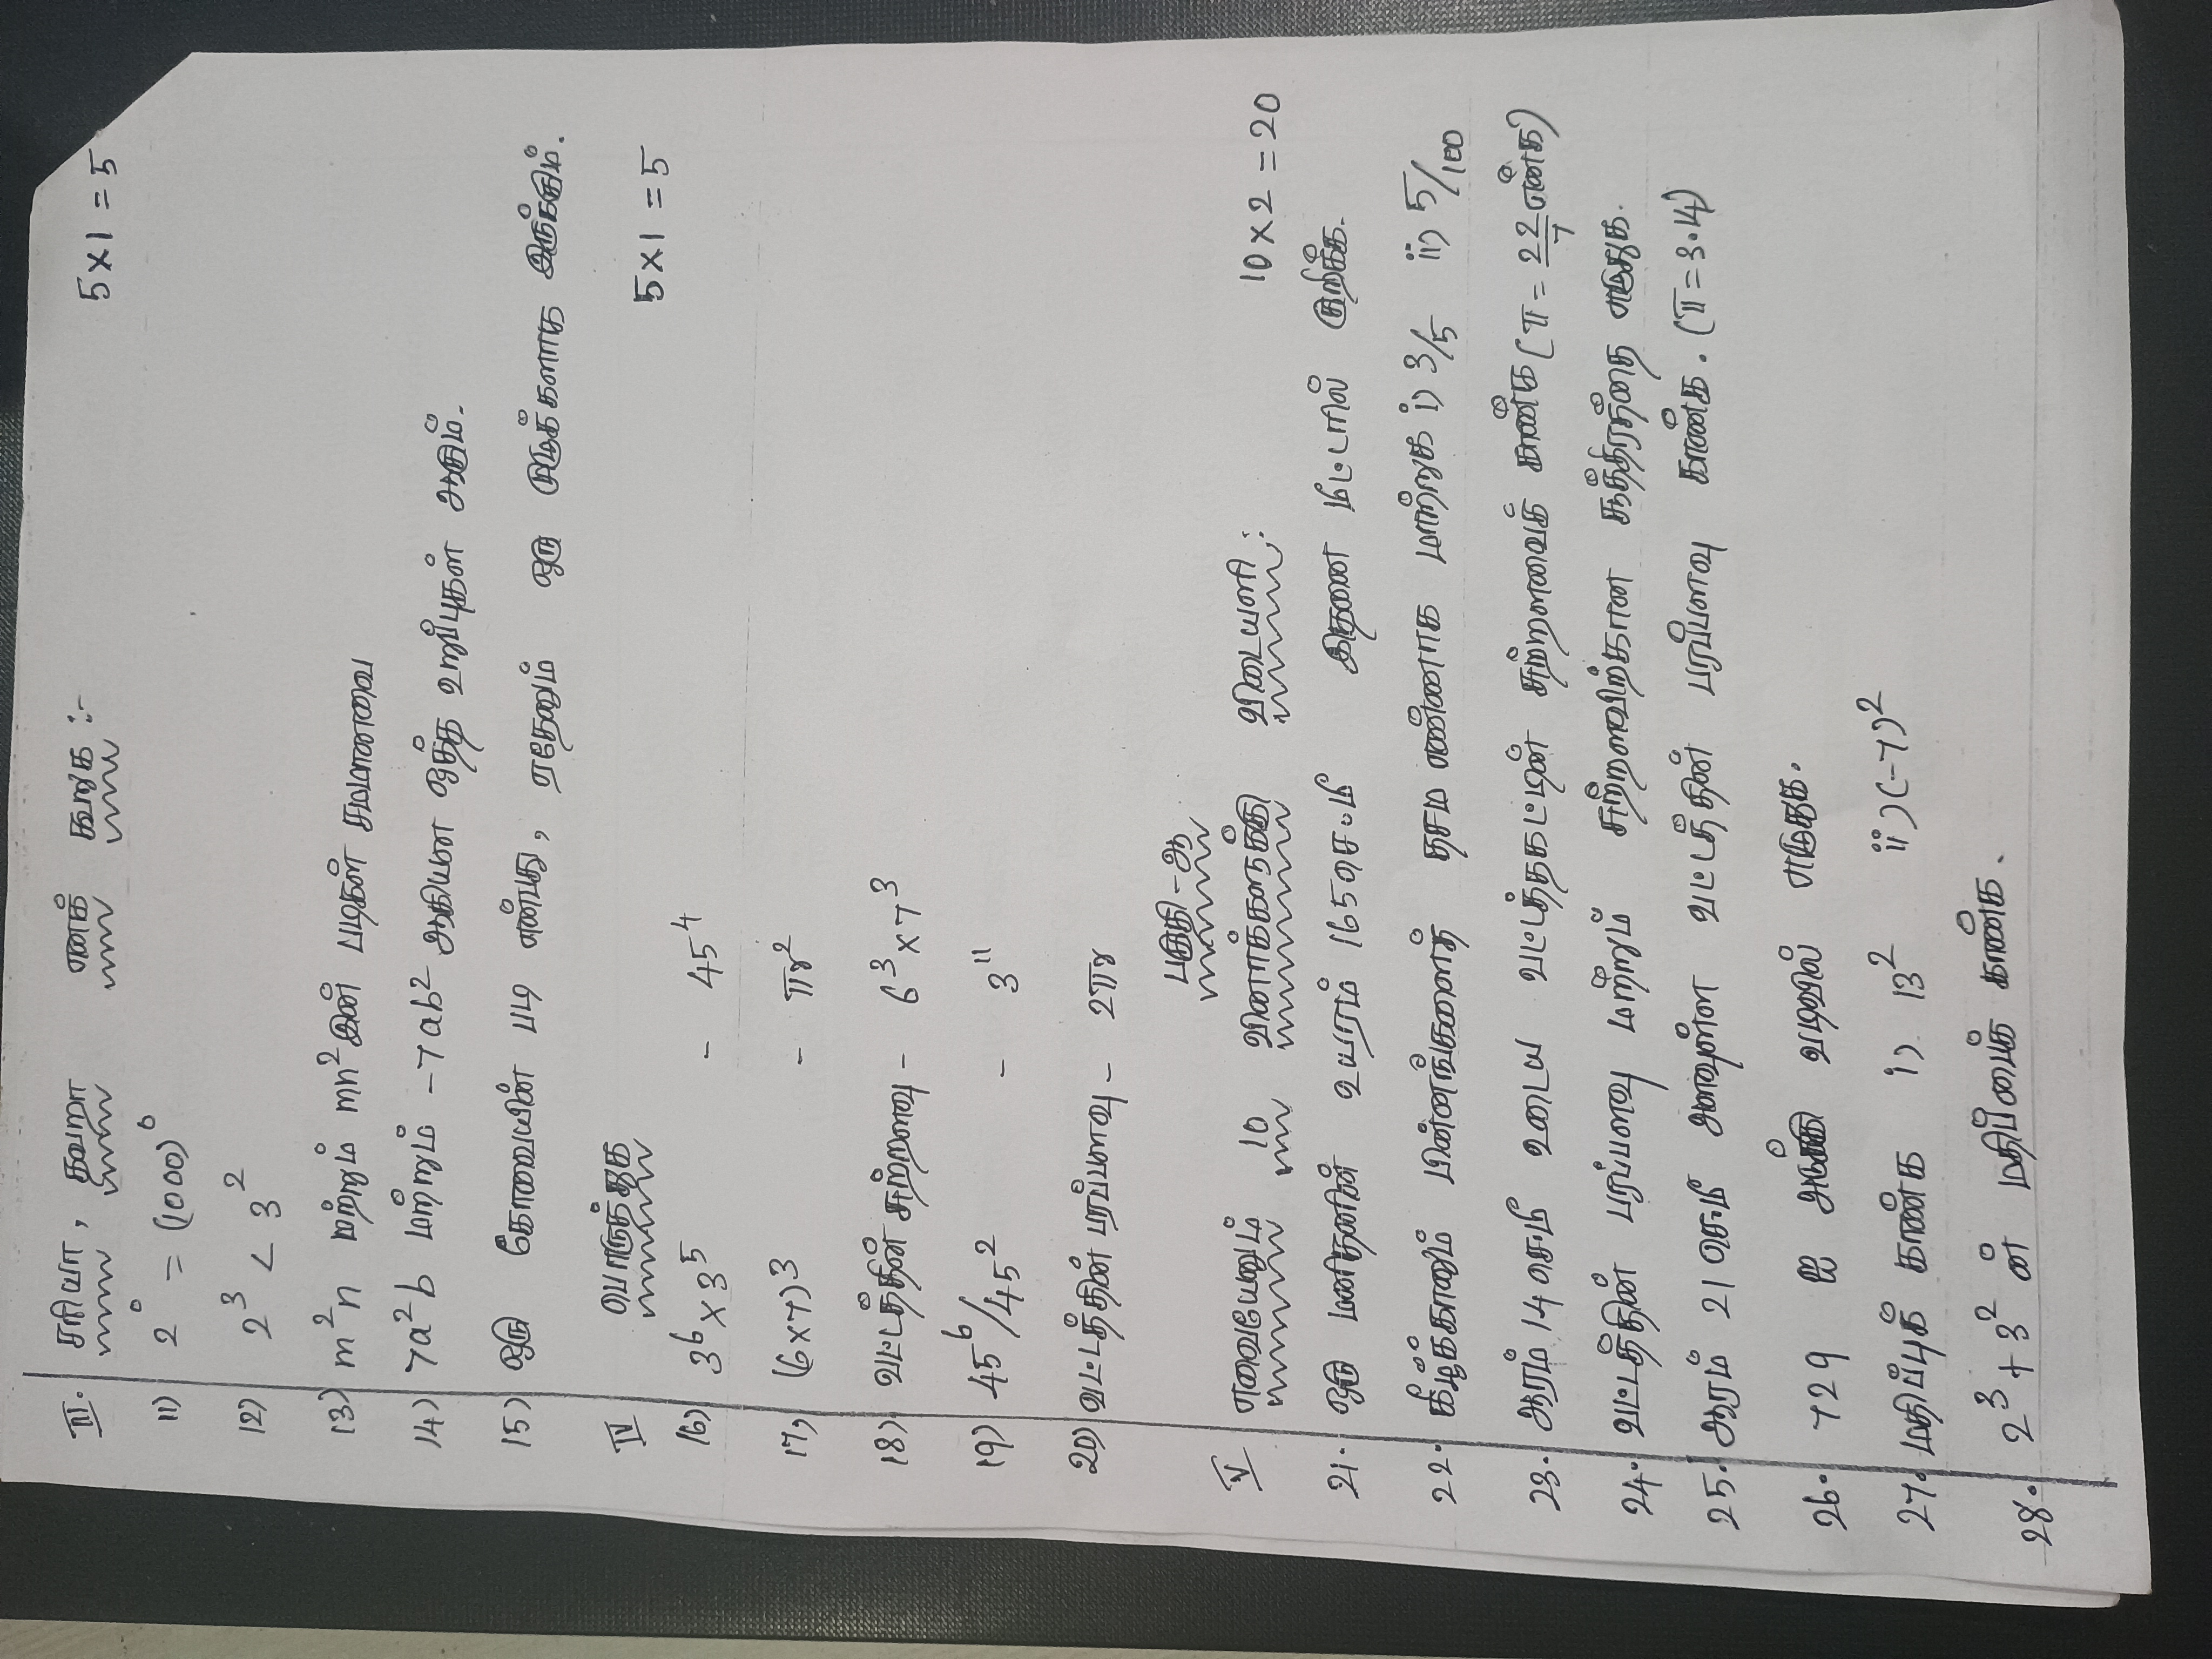 III. சரியா, தவறா எனக் கூறுக :- 5 × 1 = 5
11) 2⁰ = (1000)⁰
12) 2³ < 3²
13) m²n மற்றும் mn² இன் படிகள் சமமானவை
14) 7a²b மற்றும் -7ab² ஆகியன ஒத்த உறுப்புகள் ஆகும்.
15) ஒரு கோவையின் படி என்பது, ஏதேனும் ஒரு குடுக்களாக இருக்கும்.
IV பொருத்துக 5 × 1 = 5
16) 3⁶ × 3⁵ - 45⁴
17) (6×7)³ - πr²
18) வட்டத்தின் சுற்றளவு - 6³ × 7³
19) 45⁶/45² - 3¹¹
20) வட்டத்தின் பரப்பளவு - 2πr
பகுதி - ஆ
V எவையேனும் 10 வினாக்களுக்கு விடையளி : 10 × 2 = 20
21. ஒரு மனிதனின் உயரம் 165 செ.மீ இதனை மீட்டரில் குறிக்க.
22. கீழ்க்காணும் பின்னங்களைத் தசம எண்ணாக மாற்றுக i) 3/5 ii) 5/100
23. ஆரம் 14 செ.மீ உடைய வட்டத்தகட்டின் சுற்றளவைக் காண்க (π = 22/7 என்க)
24. வட்டத்தின் பரப்பளவு மற்றும் சுற்றளவிற்கான சூத்திரத்தை எழுதுக.
25. ஆரம் 21 செ.மீ அளவுள்ள வட்டத்தின் பரப்பளவு காண்க. (π = 3.14)
26. 729 ஐ அடுக்கு வடிவில் எழுதுக.
27. மதிப்புக் காண்க i) 13² ii) (-7)²
28. 2³ + 3² ன் மதிப்பைக் காண்க.